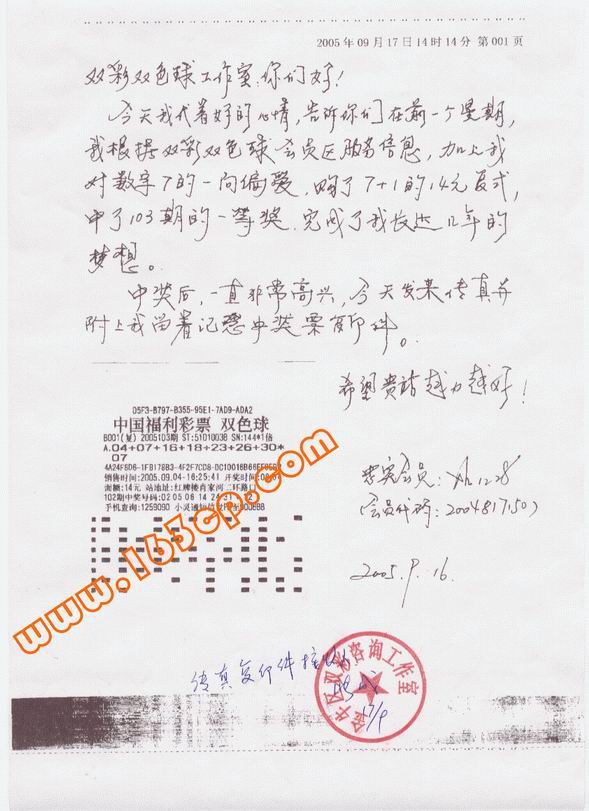 2005年09月17日14时14分 第001页
双彩双色球工作室:你们好!
今天我代着好的心情,告诉你们在前一个星期,
我根据双彩双色球会员区服务信息,加上我
对数字7的一向偏爱,购了7+1的14元复式,
中了103期的一等奖.完成了我长达几年的
梦想。
中奖后,一直非常高兴,今天发来传真并
附上我留着记念中奖票复印件。
希望贵站越办越好!
05F3-B797-B355-95E1-7AD9-ADA2
中国福利彩票 双色球
B001(复) 2005103期 ST:51010038 SN:144*1倍
A.04+07+16+18+23+26+30*
07
销售时间:2005.09.04-16:25:41 开奖时间:
面额:14元 站地址:红牌楼肖家河二环路口
102期中奖号码:02 05 06 14 24 31
手机查询:1259090 小灵通短信
会员代码:200481750)
2005.9.16.
传真复印件
17/9
金牛区双彩咨询工作室
www.163cp.com